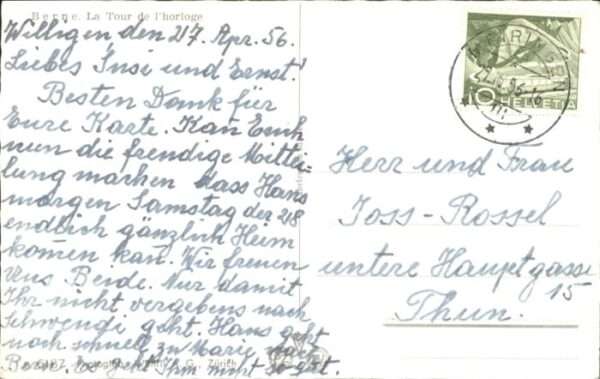 Berne. La Tour de l'horloge
Willigen den 27. Apr. 56.
Liebes Insi und Ernst!
Besten Dank für
Eure Karte. Kan Euch
nun die freudige Mittei-
lung machen dass Hans
morgen Samstag der 28
endlich gänzlich Heim
komen kan. Wir freuen
Uns Beide. Nur damit
Ihr nicht vergebens nach
Schwendi geht. Hans geht
noch schnell zu Marie nach
Bern. es geht Ihm nicht so gut.
HELVETIA
10
Herr und Frau
Joss-Rossel
untere Hauptgasse
15
Thun.